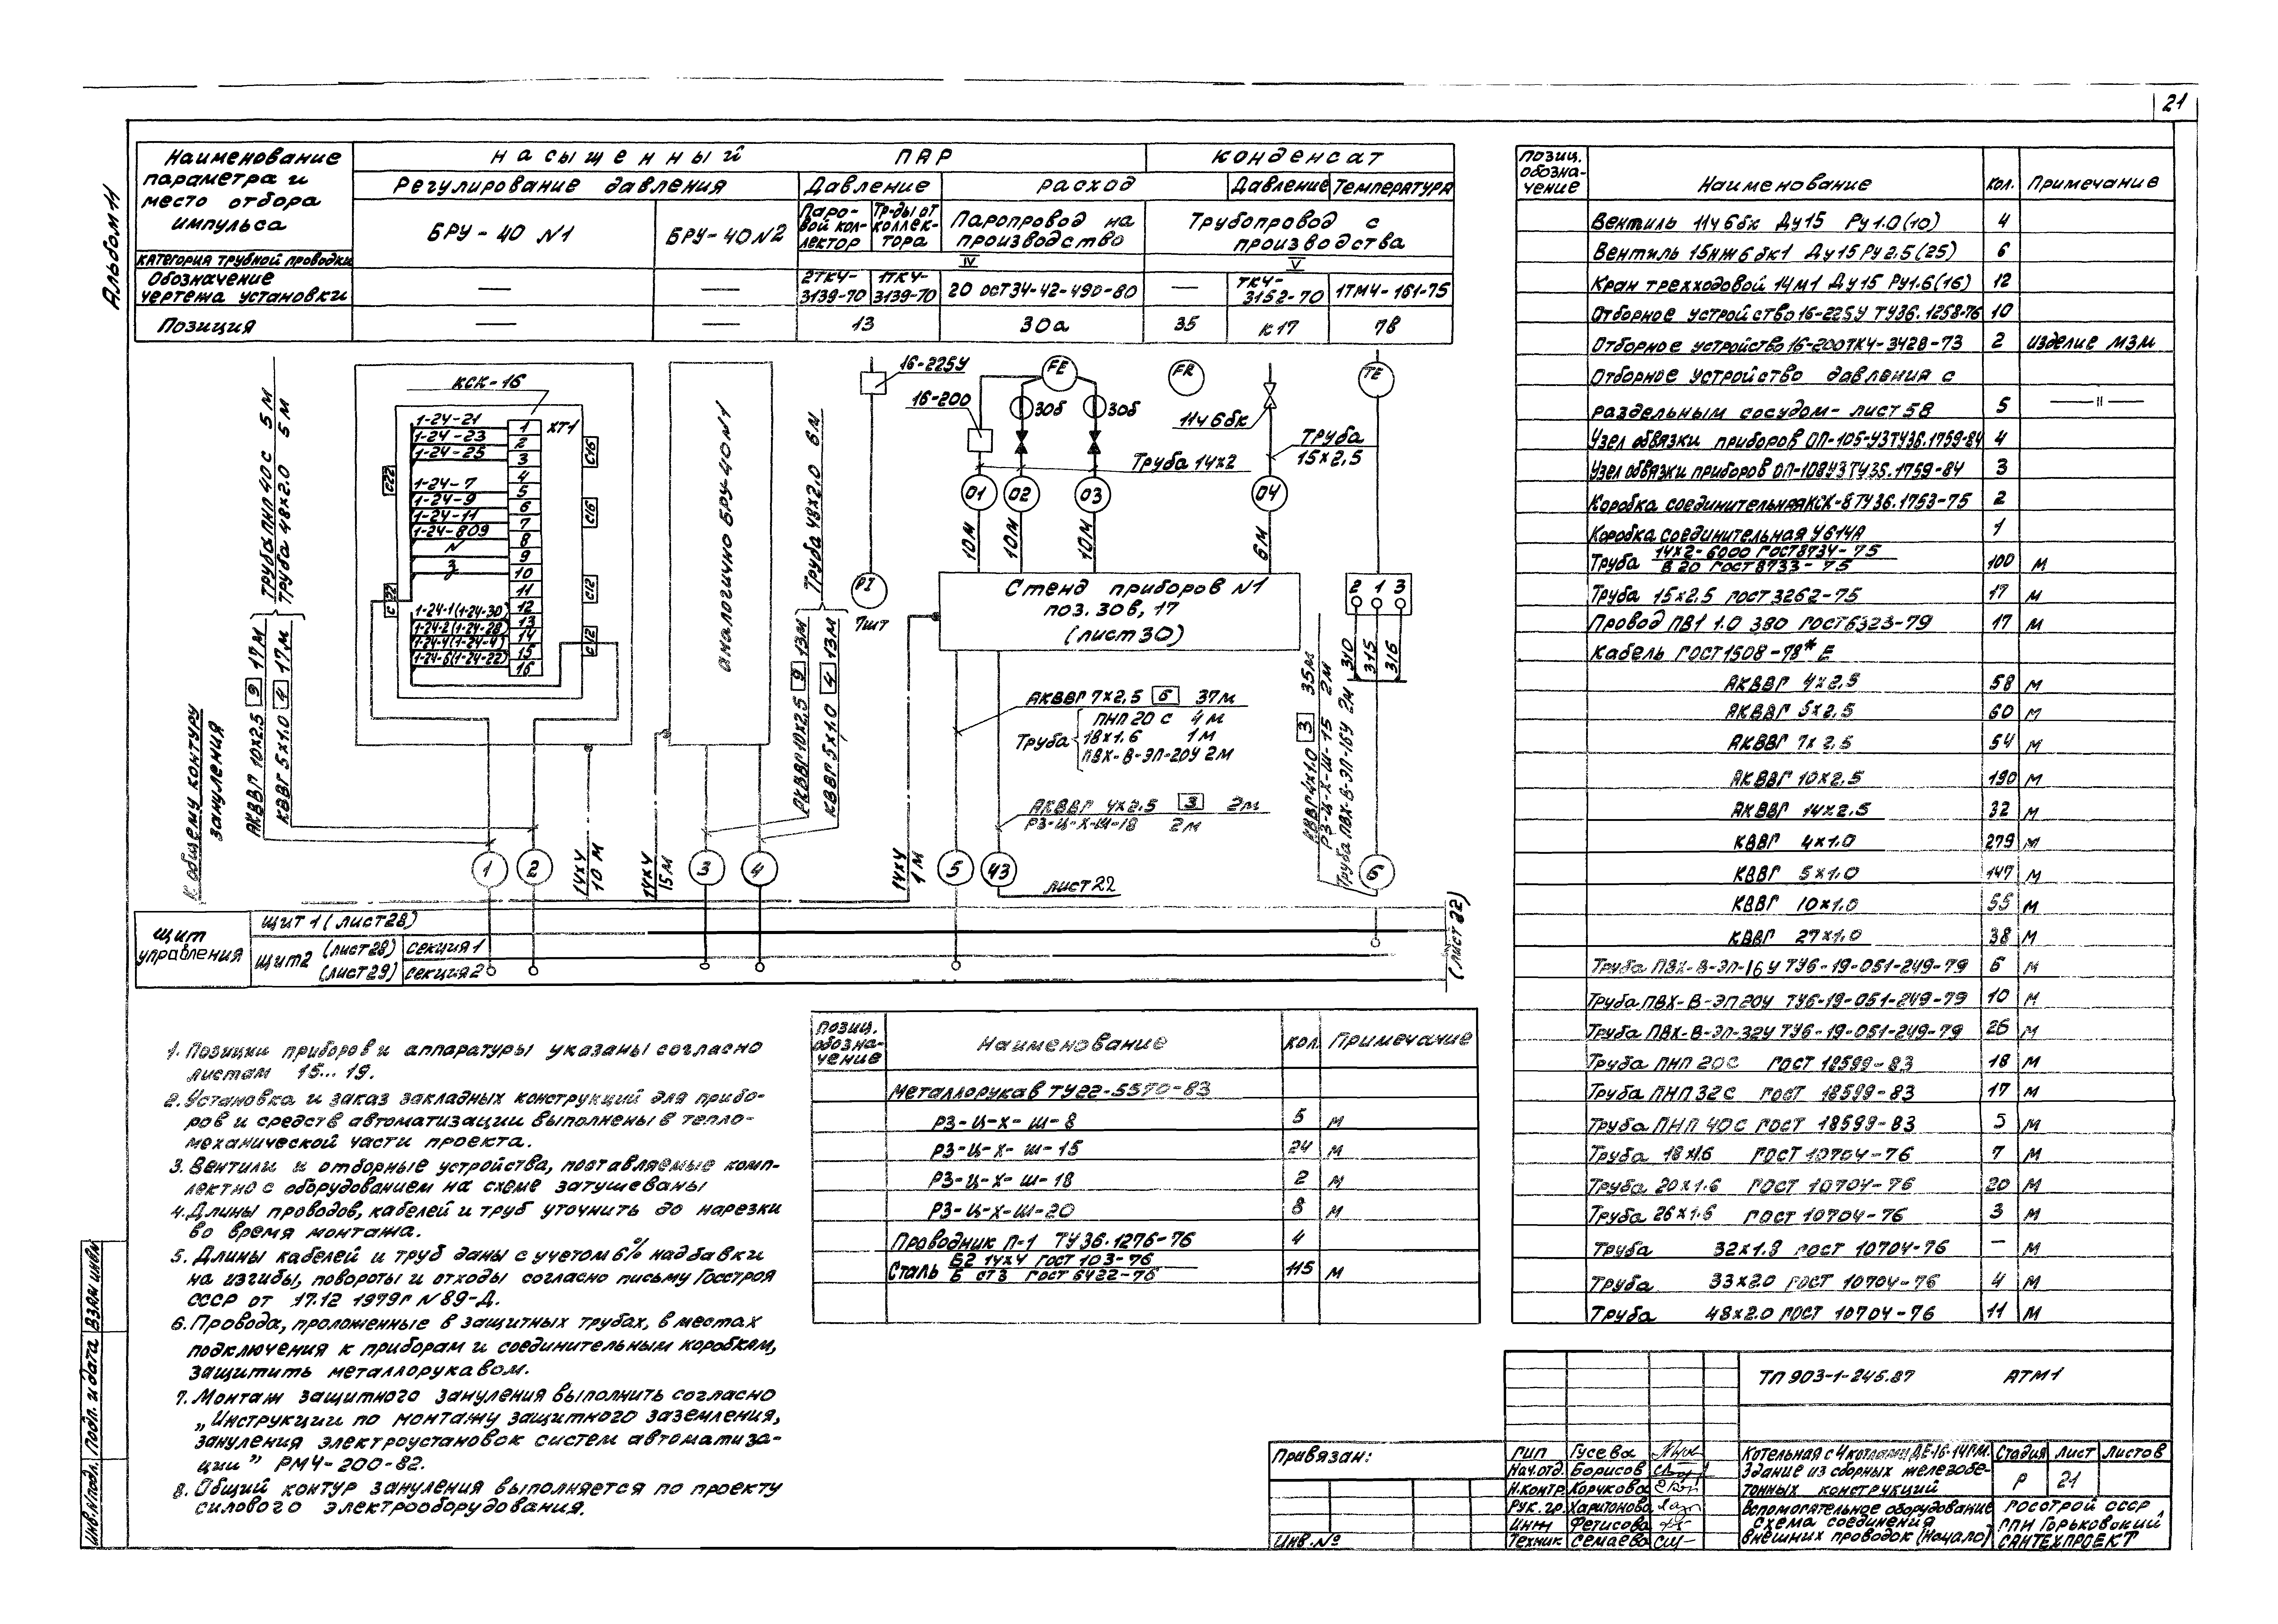 21
Альбом 11
Наименование параметра и место отбора импульса
насыщенный пар
конденсат
Регулирование давления
Давление
расход
Давление
Температура
БРУ-40 №1
БРУ-40 №2
Паровой коллектор
Тр-ды от коллектора
Паропровод на производство
Трубопровод с производства
Категория трубной проводки
IV
V
Обозначение чертежа установки
—
—
2ТК4-3139-70
1ТК4-3139-70
20 ОСТ34-42-490-80
—
ТК4-3152-70
1ТМ4-161-75
Позиция
—
—
13
30а
35
К17
7в
КСК-16
ХТ1
1-24-21
1-24-23
1-24-25
1-24-7
1-24-9
1-24-11
1-24-809
N
З
1-24-1(1-24-30)
1-24-2(1-24-28)
1-24-4(1-24-4)
1-24-6(1-24-22)
1
2
3
4
5
6
7
8
9
10
11
12
13
14
15
16
С22
С22
С16
С16
С12
С12
Труба ПНП 40С 5м
Труба 48х2.0 5м
АКВВГ 10х2.5 9 17м
КВВГ 5х1.0 4 17м
К общему контуру зануления
Аналогично БРУ-40 №1
Труба 48х2.0 6м
АКВВГ 10х2.5 9 13м
КВВГ 5х1.0 4 13м
16-225У
16-200
PI
7шт
FE
30б
30б
FR
11ч6бк
TE
Труба 14х2
Труба 15х2,5
01
02
03
04
10м
10м
10м
6м
Стенд приборов №1
поз. 30в, 17
(лист 30)
2 1 3
310
315
316
АКВВГ 7х2,5 6 37м
Труба
ПНП 20 с 4м
18х1.6 1м
ПВХ-В-ЭП-20У 2м
АКВВГ 4х2.5 3 2м
РЗ-Ц-Х-Ш-18 2м
КВВГ 4х1.0 3 35м
РЗ-Ц-Х-Ш-15 2м
Труба ПВХ-В-ЭП-16У 2м
1
2
3
4
5
43
6
14х4 10м
14х4 15м
14х4 1м
лист 22
(лист 22)
Щит управления
Щит 1 (лист 28)
Щит 2
(лист 28)
секция 1
(лист 29)
секция 2
1. Позиции приборов и аппаратуры указаны согласно
листам 15...19.
2. Установка и заказ закладных конструкций для прибо-
ров и средств автоматизации выполнены в тепло-
механической части проекта.
3. Вентили и отборные устройства, поставляемые комп-
лектно с оборудованием на схеме затушеваны
4. Длины проводов, кабелей и труб уточнить до нарезки
во время монтажа.
5. Длины кабелей и труб даны с учетом 6% надбавки
на изгибы, повороты и отходы согласно письму Госстроя
СССР от 17.12 1979г №89-Д.
6. Провода, проложенные в защитных трубах, в местах
подключения к приборам и соединительным коробкам,
защитить металлорукавом.
7. Монтаж защитного зануления выполнить согласно
„Инструкции по монтажу защитного заземления,
зануления электроустановок систем автоматиза-
ции" РМ4-200-82.
8. Общий контур зануления выполняется по проекту
силового электрооборудования.
Позиц. обозначение
Наименование
Кол.
Примечание
Металлорукав ТУ22-5570-83
РЗ-Ц-Х-Ш-8 5 м
РЗ-Ц-Х-Ш-15 24 м
РЗ-Ц-Х-Ш-18 2 м
РЗ-Ц-Х-Ш-20 8 м
Проводник П-1 ТУ36.1276-76 4
Сталь Б2 14х4 ГОСТ 103-76
Б СТ3 ГОСТ 6422-76 115 м
Позиц. обозна-чение
Наименование
Кол.
Примечание
Вентиль 11ч6бк Ду15 Ру1.0(10) 4
Вентиль 15нж6бк1 Ду15 Ру2.5(25) 6
Кран трехходовой 14м1 Ду15 Ру1.6(16) 12
Отборное устройство 16-225У ТУ36.1258-76 10
Отборное устройство 16-200ТК4-3428-73 2 изделие МЗМ
Отборное устройство давления с
раздельным сосудом- лист 58 5 —"—
Узел обвязки приборов ОП-105-У3ТУ36.1759-84 4
Узел обвязки приборов ОП-108У3ТУ35.1759-84 3
Коробка соединительная КСК-8 ТУ36.1753-75 2
Коробка соединительная У614А 1
Труба 14х2-6000 ГОСТ8734-75
В 20 ГОСТ8733-75 100 м
Труба 15х2.5 ГОСТ 3262-75 17 м
Провод ПВ1 1.0 380 ГОСТ6323-79 17 м
Кабель ГОСТ1508-78* Е
АКВВГ 4х2.5 58 м
АКВВГ 5х2.5 60 м
АКВВГ 7х2.5 54 м
АКВВГ 10х2.5 190 м
АКВВГ 14х2.5 32 м
КВВГ 4х1.0 279 м
КВВГ 5х1.0 147 м
КВВГ 10х1.0 55 м
КВВГ 27х1.0 38 м
Труба ПВХ-В-ЭП-16У ТУ6-19-051-249-79 6 м
Труба ПВХ-В-ЭП20У ТУ6-19-051-249-79 10 м
Труба ПВХ-В-ЭП-32У ТУ6-19-051-249-79 26 м
Труба ПНП 20С ГОСТ 18599-83 18 м
Труба ПНП 32С ГОСТ 18599-83 17 м
Труба ПНП 40С ГОСТ 18599-83 5 м
Труба 18х1.6 ГОСТ 10704-76 7 м
Труба 20х1.6 ГОСТ 10704-76 20 м
Труба 26х1.6 ГОСТ 10704-76 3 м
Труба 32х1.8 ГОСТ 10704-76 — м
Труба 33х2.0 ГОСТ 10704-76 4 м
Труба 48х2.0 ГОСТ 10704-76 11 м
ТП 903-1-245.87 АТМ1
Привязан:
Инв.№
ГИП Гусева
Нач.отд. Борисов
Н.контр. Корчкова
Рук.гр. Харитонова
Инж Фетисова
Техник Семаева
Котельная с 4 котлами ДЕ-16-14ГМ.
Здание из сборных железобе-
тонных конструкций
Стадия Лист Листов
Р 21
Вспомогательное оборудование
схема соединения
внешних проводок (Начало)
Госстрой СССР
ГПИ Горьковский
Сантехпроект
Инв.№подл. Подп. и дата Взам инв№